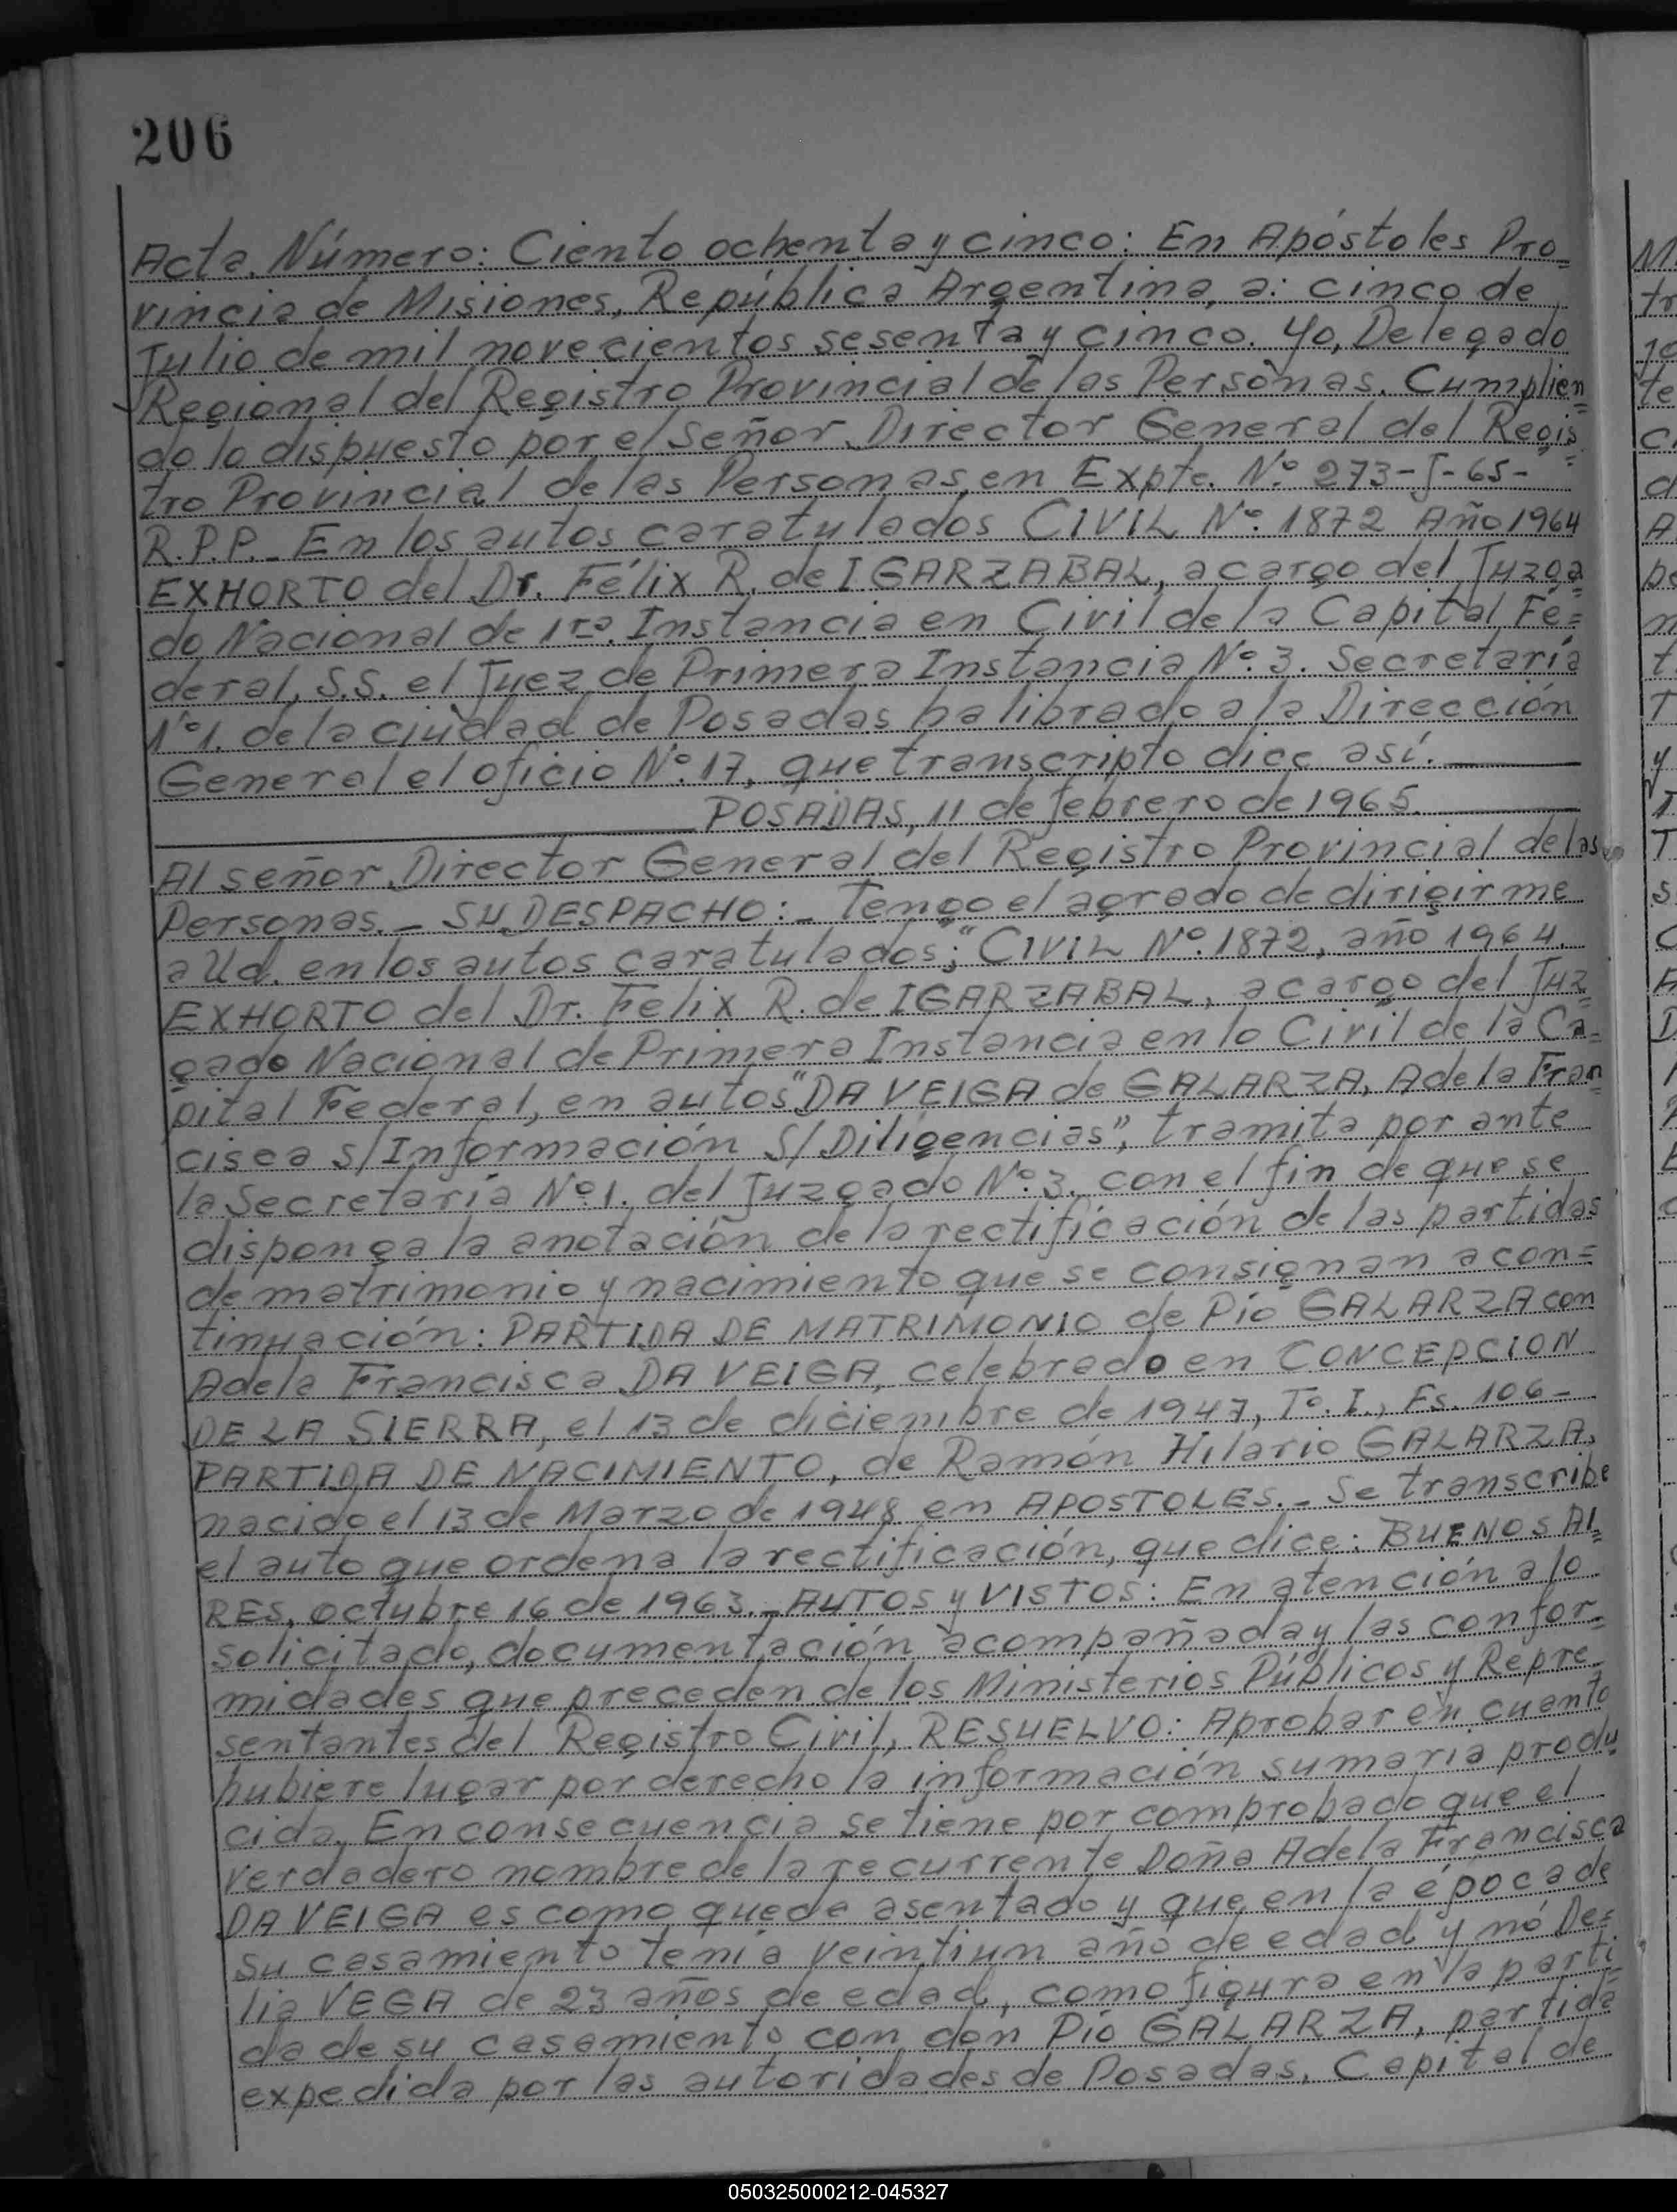 206
Acta Número: Ciento ochenta y cinco: En Apóstoles Pro=
vincia de Misiones, República Argentina, a: cinco de
Julio de mil novecientos sesenta y cinco. Yo, Delegado
Regional del Registro Provincial de las Personas. Cumplien=
do lo dispuesto por el Señor Director General del Regis=
tro Provincial de las Personas, en Expte. Nº 273-J-65-
R.P.P._ En los autos caratulados CIVIL Nº. 1872 Año 1964
EXHORTO del Dr. Félix R. de IGARZABAL, a cargo del Juzga=
do Nacional de 1ra. Instancia en Civil de la Capital Fe=
deral, S.S. el Juez de Primera Instancia Nº. 3. Secretaría
Nº1. de la ciudad de Posadas ha librado a la Dirección
General el oficio Nº. 17, que transcripto dice así.
POSADAS, 11 de febrero de 1965.
Al señor Director General del Registro Provincial de las
Personas._ SU DESPACHO:_ Tengo el agrado de dirigirme
a Ud. en los autos caratulados; "CIVIL Nº. 1872, año 1964.
EXHORTO del Dr. Felix R. de IGARZABAL, a cargo del Juz=
gado Nacional de Primera Instancia en lo Civil de la Ca=
pital Federal, en autos "DA VEIGA de GALARZA, Adela Fran=
cisca s/Información S/Diligencias", tramita por ante
la Secretaría Nº1. del Juzgado Nº. 3. con el fin de que se
disponga la anotación de la rectificación de las partidas
de matrimonio y nacimiento que se consignan a con=
tinuación: PARTIDA DE MATRIMONIO de Pío GALARZA con
Adela Francisca DA VEIGA, celebrado en CONCEPCION
DE LA SIERRA, el 13 de diciembre de 1947, Tº. I., Fs. 106-
PARTIDA DE NACIMIENTO, de Ramón Hilario GALARZA,
nacido el 13 de Marzo de 1948 en APOSTOLES._ Se transcribe
el auto que ordena la rectificación, que dice: BUENOS AI=
RES, octubre 16 de 1963._ AUTOS y VISTOS: En atención a lo
solicitado, documentación acompañada y las confor=
midades que preceden de los Ministerios Públicos y Repre=
sentantes del Registro Civil, RESUELVO: Aprobar en cuanto
hubiere lugar por derecho la información sumaria produ
cida. En consecuencia se tiene por comprobado que el
verdadero nombre de la recurrente Doña Adela Francisca
DA VEIGA es como queda asentado y que en la época de
su casamiento tenía veintiun año de edad y nó De=
lia VEGA de 23 años de edad, como figura en la parti=
da de su casamiento con don Pío GALARZA, partida
expedida por las autoridades de Posadas, Capital de
050325000212-045327